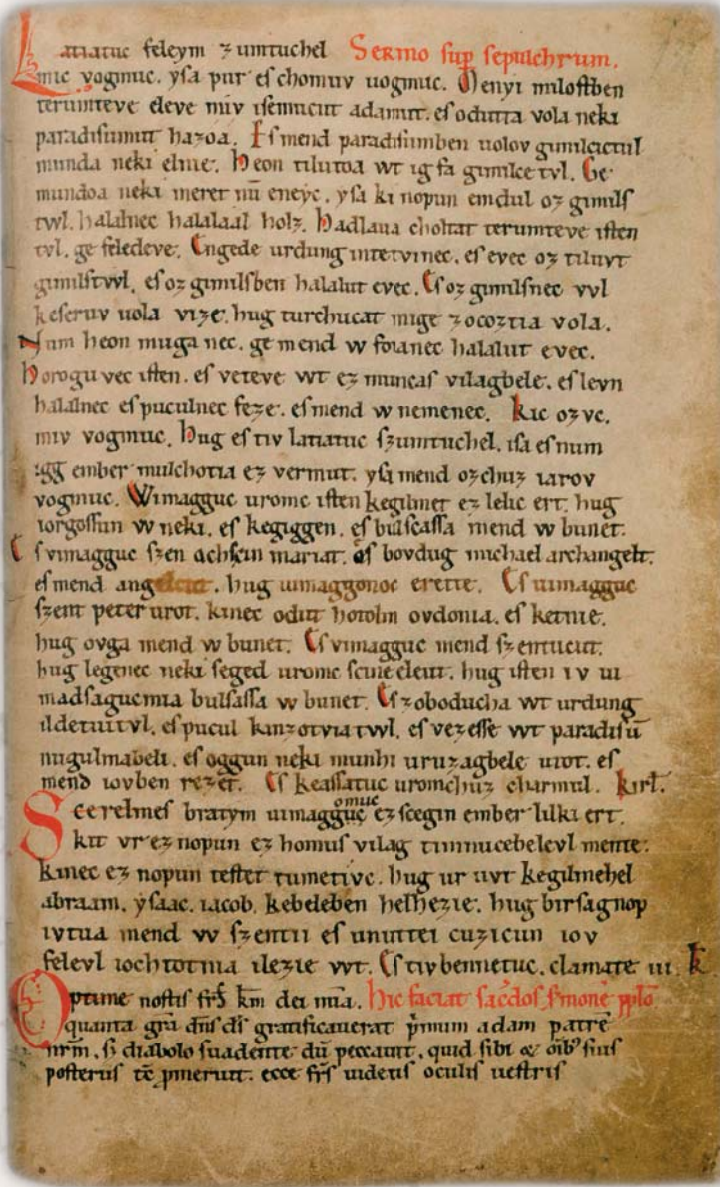 Latiatuc feleym zumtuchel Sermo sup sepulchrum.
mic vogmuc. ysa pur es chomuv uogmuc. Menyi milostben
terumteve eleve miv isemucut adamut. es odutta vola neki
paradisumut hazoa. Es mend paradisumben uolov gimilcictul
munda neki elnie. Heon tilutoa wt ig fa gimilce tvl. Ge
mundoa neki meret nū eneyc. ysa ki nopun emdul oz gimils
twl. halalnec halalaal holz. Hadlaua choltat terumteve isten
tvl. ge feledeve. Engede urdung intetvinec. es evec oz tiluvt
gimilstwl. es oz gimilsben halalut evec. Es oz gimilsnec vvl
keseruv uola vize. hug turchucat mige zocoztia vola.
Num heon muga nec. ge mend w foianec halalut evec.
Horogu vec isten. es veteve wt ez muncas vilagbele. es levn
halalnec es puculnec feze. es mend w nemenec. Kic ozvc.
miv vogmuc. Hug es tiv latiatuc szumtuchel. isa es num
igg ember mulchotia ez vermut. ysa mend ozchuz iarov
vogmuc. Wimagguc uromc isten kegilmet ez lelic ert. hug
iorgossun w neki. es kegiggen. es bulscassa mend w bunet.
Es vimagguc szen achscin mariat. es bovdug michael archangelt.
es mend angelcut. hug uimaggonoc erette. Es uimagguc
szent peter urot. kinec odut hotolm ovdonia. es ketnie.
hug ovga mend w bunet. Es vimagguc mend szentucut.
hug legenec neki seged uromc scine eleut. hug isten iv ui
madsaguemia bulsassa w bunet. Es zoboducha wt urdung
ildetuitvl. es pucul kinzotviatwl. es vezesse wt paradisū
nugulmabeli. es oggun neki munhi uruzagbele utot. es
mend iovben rezet. Es keassatuc uromchuz charmul. kirl.
Scerelmes bratym uimagguc omuc ez scegin ember lilki ert.
kit vr ez nopun ez homus vilag timnucebelevl mente.
kinec ez nopun testet tumetivc. hug ur uvt kegilmehel
abraam. ysaac. iacob. kebeleben helhezie. hug birsagnop
ivtua mend w szentii es unuttei cuzicun iov
felevl iochtotnia ilezie wt. Es tivbennetuc. clamate iii. K.
Optime nostis frs̄ km̄ dei mīa. Hic faciat sac̄dos s̄monē pplō
quanta gr̄a dn̄s ds̄ gratificauerat p̄mum adam patrē
nrm̄. s; diabolo suadente dū peccauit. quid sibi & oīb' suis
posteris tc̄ pmeruit. ecce frs̄ uidetis oculis uestris